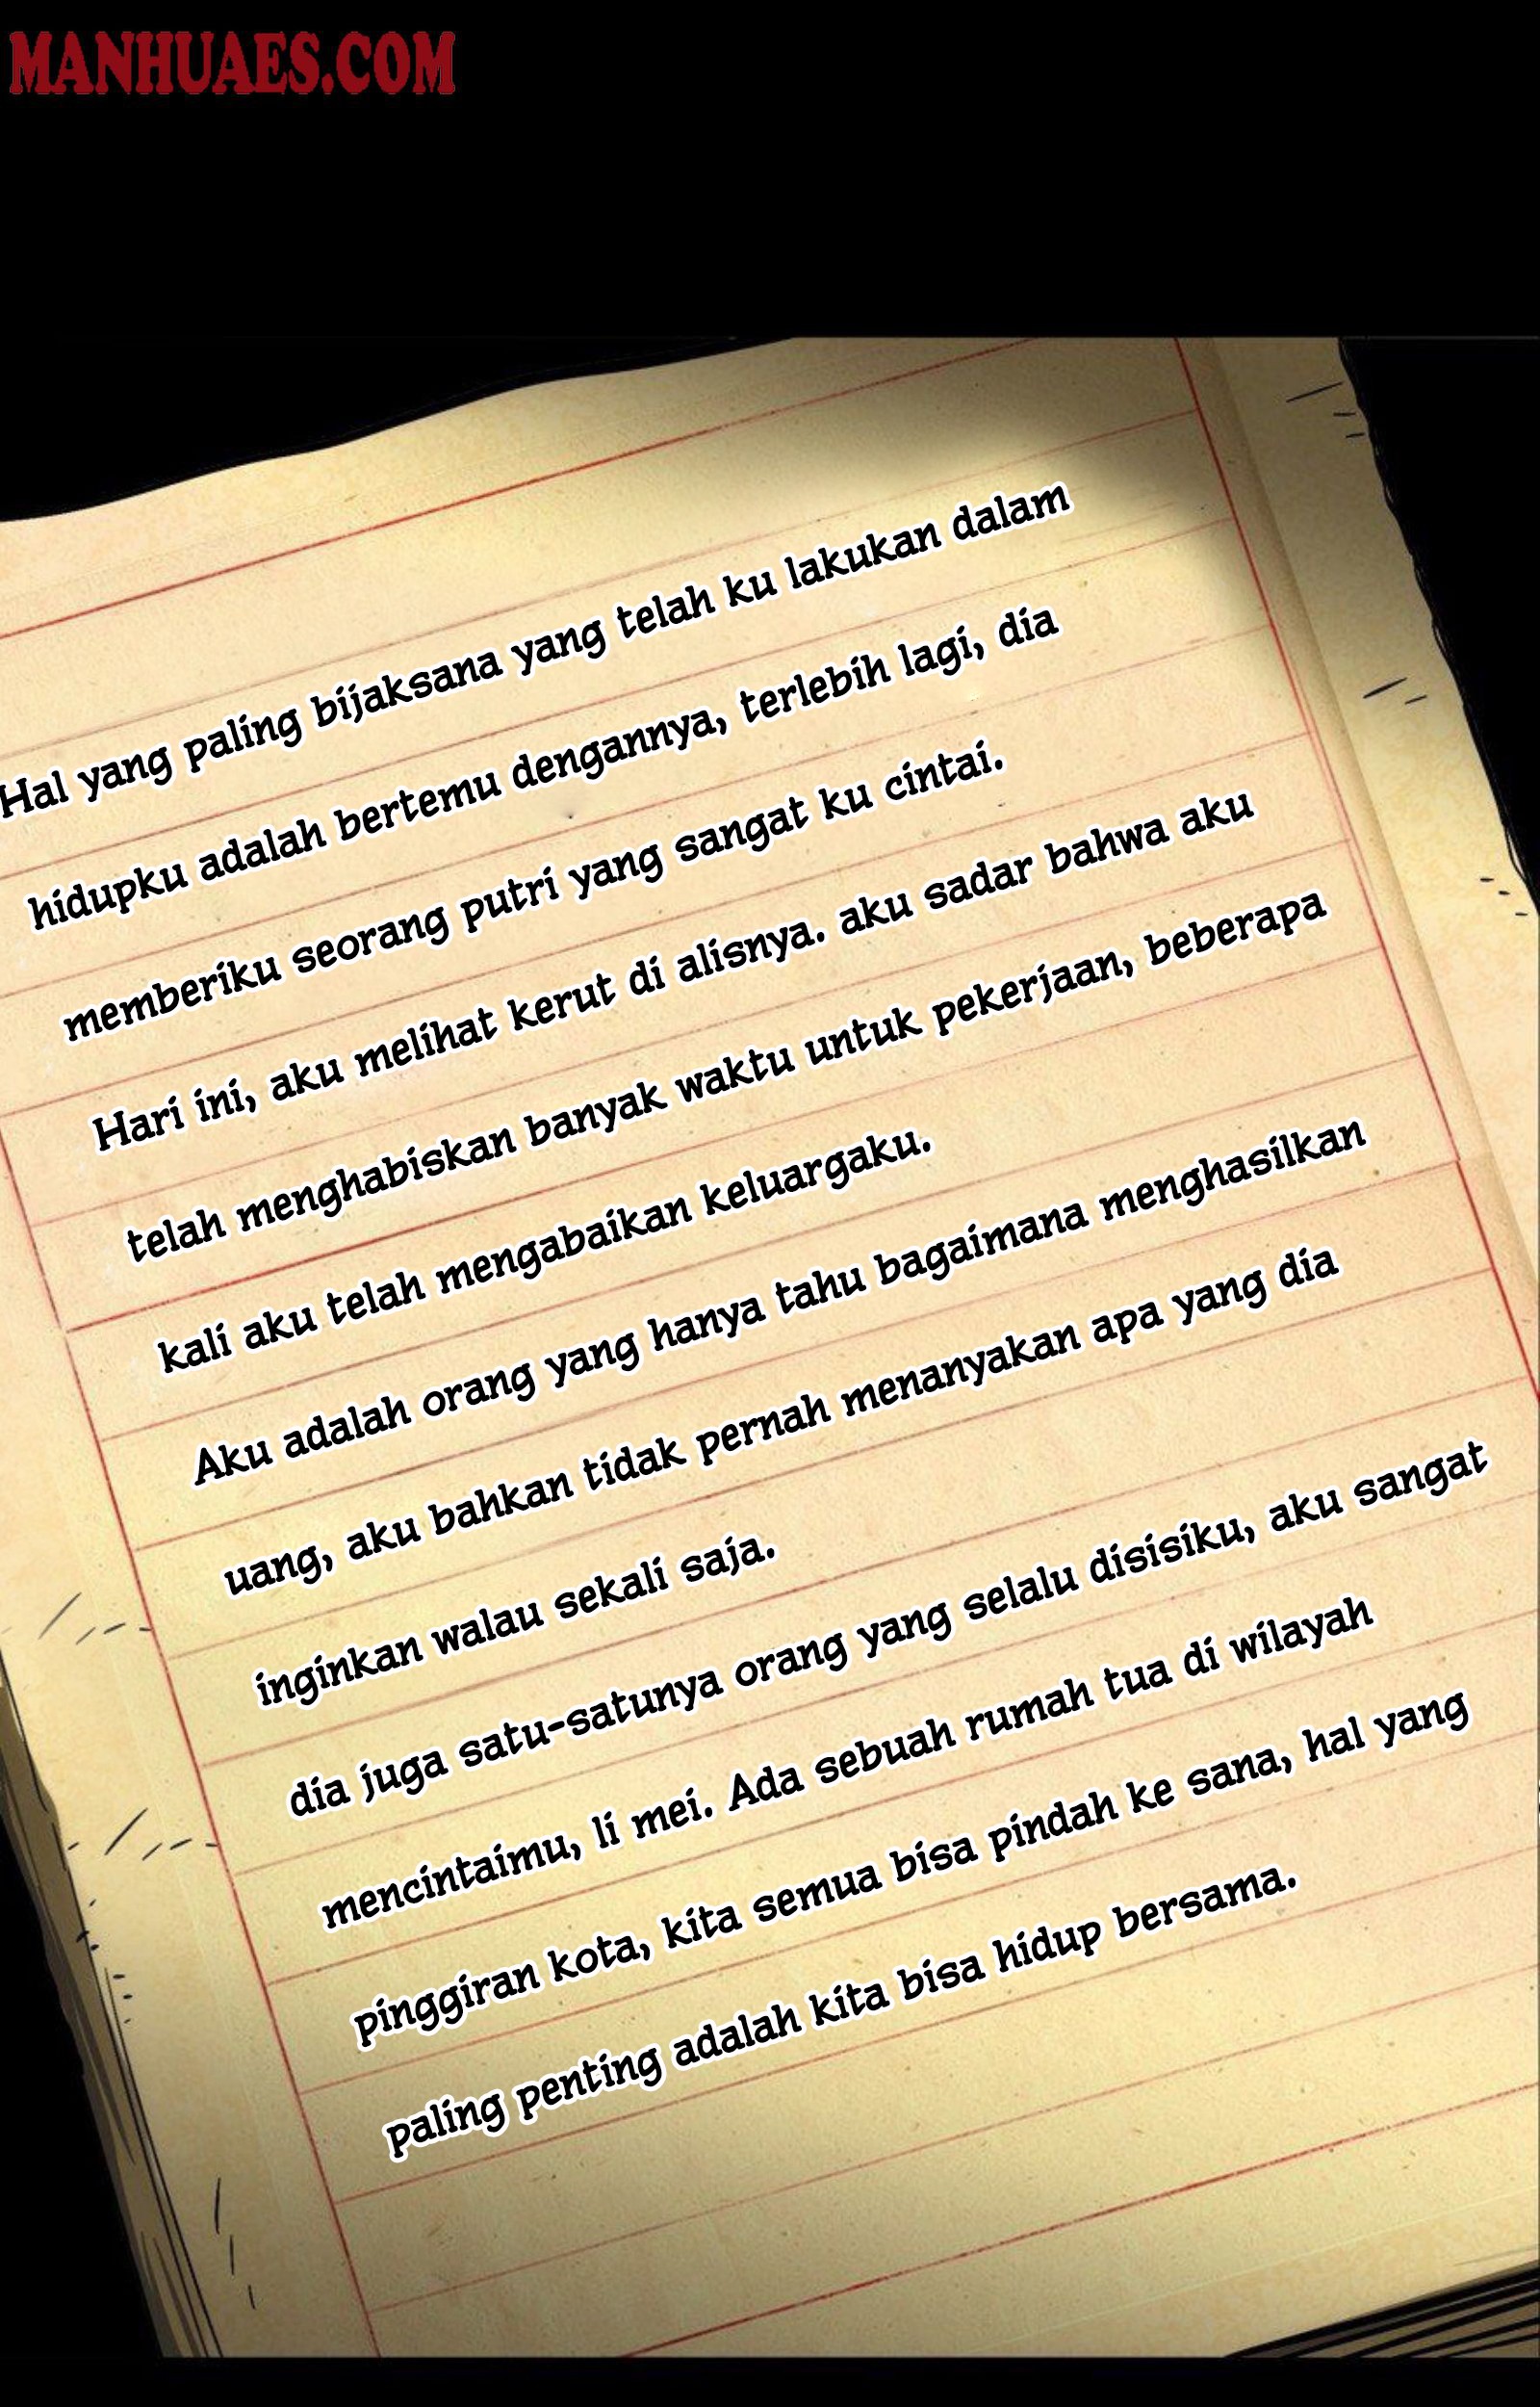 MANHUAES.COM
Hal yang paling bijaksana yang telah ku lakukan dalam
hidupku adalah bertemu dengannya, terlebih lagi, dia
memberiku seorang putri yang sangat ku cintai.
Hari ini, aku melihat kerut di alisnya. aku sadar bahwa aku
telah menghabiskan banyak waktu untuk pekerjaan, beberapa
kali aku telah mengabaikan keluargaku.
Aku adalah orang yang hanya tahu bagaimana menghasilkan
uang, aku bahkan tidak pernah menanyakan apa yang dia
inginkan walau sekali saja.
dia juga satu-satunya orang yang selalu disisiku, aku sangat
mencintaimu, li mei. Ada sebuah rumah tua di wilayah
pinggiran kota, kita semua bisa pindah ke sana, hal yang
paling penting adalah kita bisa hidup bersama.